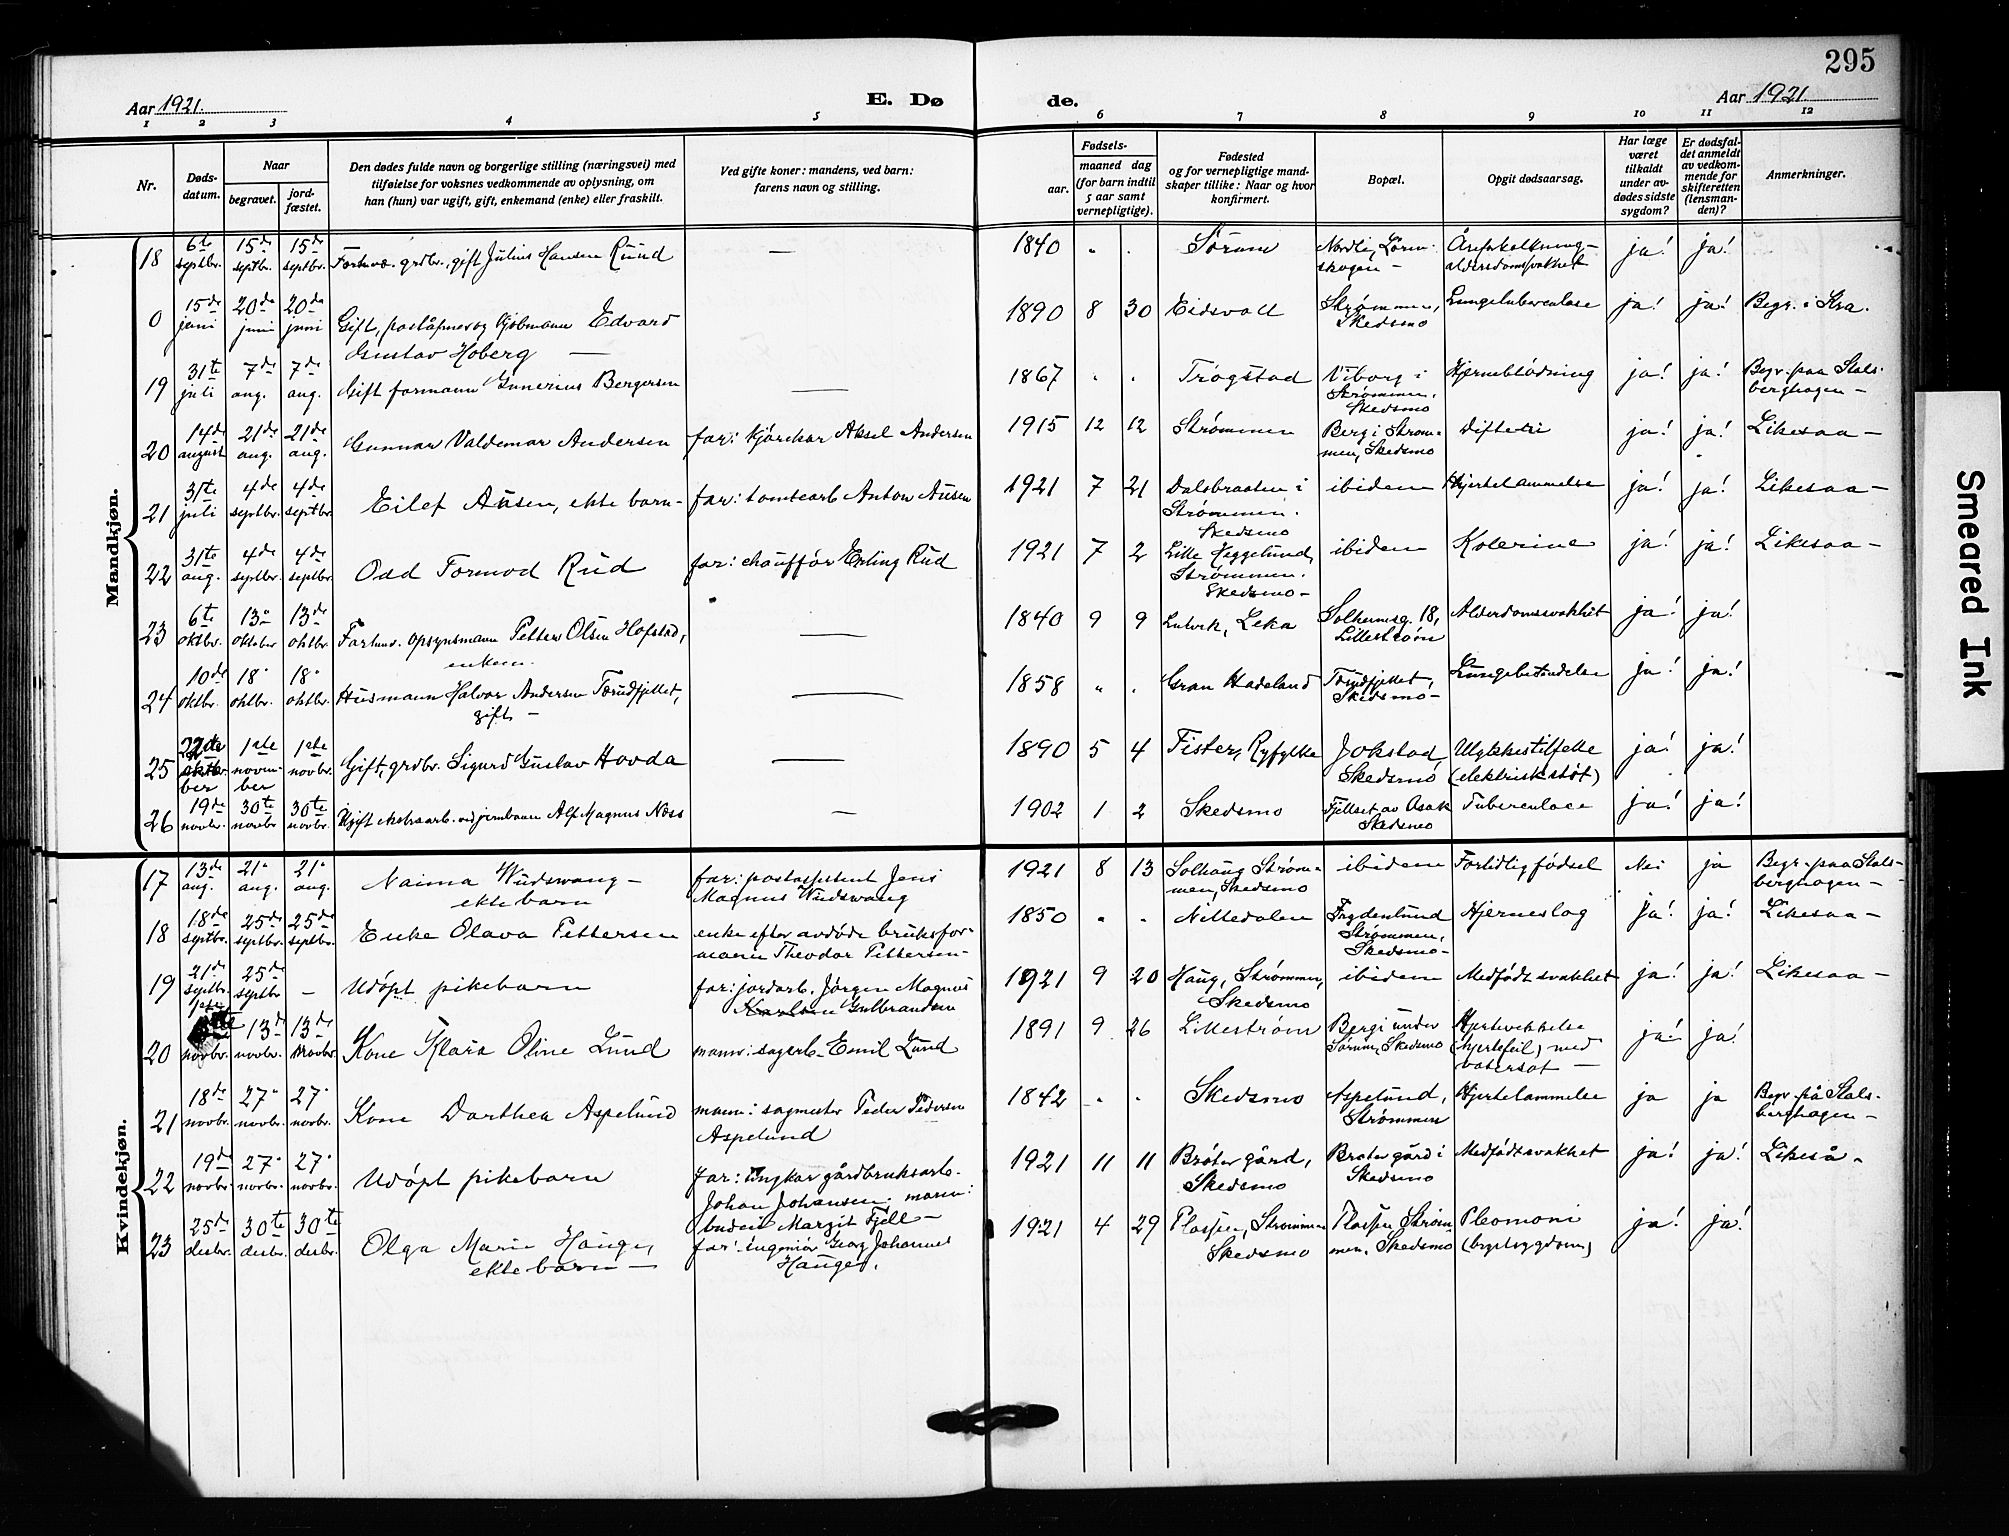 295
Aar 1921. E. Dø de. Aar 1921.
1 2 3 4 5 6 7 8 9 10 11 12
Nr.
Døds-
datum.
Naar
begravet.
jord-
fæstet.
Den dødes fulde navn og borgerlige stilling (næringsvei) med
tilføielse for voksnes vedkommende av oplysning, om
han (hun) var ugift, gift, enkemand (enke) eller fraskilt.
Ved gifte koner: mandens, ved barn:
farens navn og stilling.
Fødsels-
aar.
maaned dag
(for barn indtil
5 aar samt
vernepligtige).
Fødested
og for vernepligtige mand-
skaper tillike: Naar og hvor
konfirmert.
Bopæl.
Opgit dødsaarsag.
Har læge
været
tilkaldt
under av-
dødes sidste
sygdom?
Er dødsfal-
det anmeldt
av vedkom-
mende for
skifteretten
(lensman-
den)?
Anmerkninger.
Mandkjøn.
18 6te septbr. 15de septbr. 15de septbr. Forhv. grdbr., gift Julius Hansen Ruud — 1840 " . Sørum Nordli, Løren-
skogen – Åreforkalkning –
alderdomsvakhet ja! ja!
0 15de juni 20de juni 20de juni Gift, poståpner og kjøbmann Edvard
Gustav Hoberg — 1890 8 30 Eidsvoll Strømmen,
Skedsmo Lungetuberculose ja! ja! Begr. i Kra.
19 31te juli 7de aug. 7de aug. Gift formann Gunerius Bergersen — 1867 " . Trøgstad Viborg i
Strømmen,
Skedsmo Hjerneblødning ja! ja! Begr. paa Stals-
berghagen –
20 14de august 21de aug. 21de aug. Gunnar Valdemar Andersen far: kjørekar Aksel Andersen 1915 12 12 Strømmen Berg i Strøm-
men, Skedsmo difteri ja! ja! Likesaa –
21 31te juli 4de septbr. 4de septbr. Eilef Ausen, ekte barn – far: tomtearb. Anton Ausen 1921 7 21 Dalsbraaten i
Strømmen.
Skedsmo ibidem Hjertelammelse ja! ja! Likesaa –
22 31te aug. 4de septbr. 4de septbr. Odd Tormod Rud far: chauffør Erling Rud 1921 7 2 Lille Heggelund,
Strømmen.
Skedsmo – ibidem Kolerine ja! ja! Likesaa –
23 6te oktbr. 13" oktober 13de oktbr. Forhenv. opsynsmann Petter Olsen Hofstad,
enkem. — 1840 9 9 Leka Solheimsg. 18,
Lillestrøm Alderdomsvakhet ja! ja!
24 10de oktbr. 18" oktbr. 18" oktbr. Husmann Halvor Andersen Torudfjellet,
gift – — 1858 " . Gran Hadeland Torudfjellet,
Skedsmo – Lungebetændelse ja! ja!
25 22de oktober 1ste november 1ste novbr. Gift, grdbr. Sigurd Gustav Hovda — 1890 5 4 Fister, Ryfylke Jokstad,
Skedsmo Ulykkestilfelle
(elektrisk støt) ja! ja!
26 19de novbr. 30te novbr. 30te novbr. Ugift ekstraarb. ved jernbanen Alf Magnus Næss — 1902 1 2 Skedsmo Fjellset av Asak
Skedsmo Tuberculose ja! ja!
Kvindekjøn.
17 13de aug. 21" aug. 21" aug. Naima Wudswang –
ekte barn far: postassistent Jens
Magnus Wudswang 1921 8 13 Solhaug Strøm-
men, Skedsmo ibidem Fortidlig fødsel Nei ja Begr. paa Stals-
berghagen –
18 18de septbr. 25de septbr. 25de septbr. Enke Olava Pettersen enke efter avdøde bruksfor-
mann Theodor Pettersen – 1850 " " Nittedalen Frydenlund
Strømmen,
Skedsmo – Hjerneslag ja! ja! Likesaa –
19 21de septbr. 25de septbr – Udøpt pikebarn far: jordarb. Jørgen Magnus
Karlsen Gulbrandsen 1921 9 20 Haug, Strømmen,
Skedsmo ibidem Medfødt svakhet ja! ja! Likesaa –
20 1ste novbr. 13de novbr. 13de novbr. Kone Klara Oline Lund mann: sagarb. Emil Lund 1891 9 26 Lillestrøm Berg i under
Sørum, Skedsmo Hjertelammelse
(hjertefeil) med
vatersot – ja! ja!
21 18de novbr. 27" novbr. 27" novbr. Kone Dorthea Aspelund mann: sagmester Peder Pedersen
Aspelund 1842 " " Skedsmo Aspelund,
Strømmen Hjertelammelse ja ja Begr. på Stals-
berghagen –
22 19de novbr. 27" novbr. 27" novbr. Udøpt pikebarn far: ungkar gårdbruksarb.
Johan Johansen. moren:
budeie Margit Fjell – 1921 11 11 Bråter gård,
Skedsmo Bråter gård i
Skedsmo Medfødt svakhet ja! ja! Likeså –
23 25de desbr. 30te desbr. 30te desbr. Olga Marie Hauger,
ekte barn — far: ingeniør Georg Johannes
Hauger. 1921 4 29 Plassen, Strømmen
Skedsmo Plassen Strøm-
men, Skedsmo Pleomoni
(brystsygdom) ja! ja!
Smeared Ink